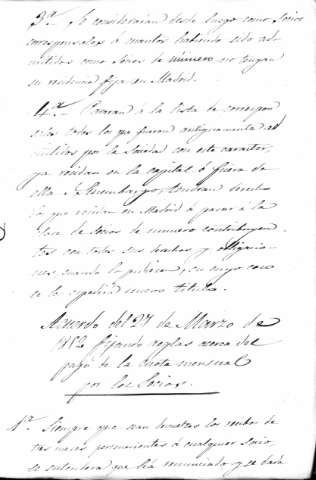 3.ª Se considerarán desde luego como Socios
corresponsales á cuantos habiendo sido ad-
mitidos como Socios de número no tengan
su residencia fija en Madrid.
4.ª Pasarán á la lista de correspon-
sales todos los que fueron antiguamente ad-
mitidos por la Sociedad con este caracter,
ya residan en la capital ó fuera de
ella. Sin embargo, tendrán derecho
los que residan en Madrid á pasar á la
clase de Socios de número contribuyen-
tes con todos sus derechos y obligacio-
nes cuando lo pidiesen, en cuyo caso
se les espedirá nuevo título.
Acuerdo del 27 de Marzo de
1852 fijando reglas acerca del
pago de la cuota mensual
por los Socios.
1.ª Siempre que sean devueltos los recibos de
tres meses pertenecientes á cualquier Socio
se entenderá que há renunciado y se dará